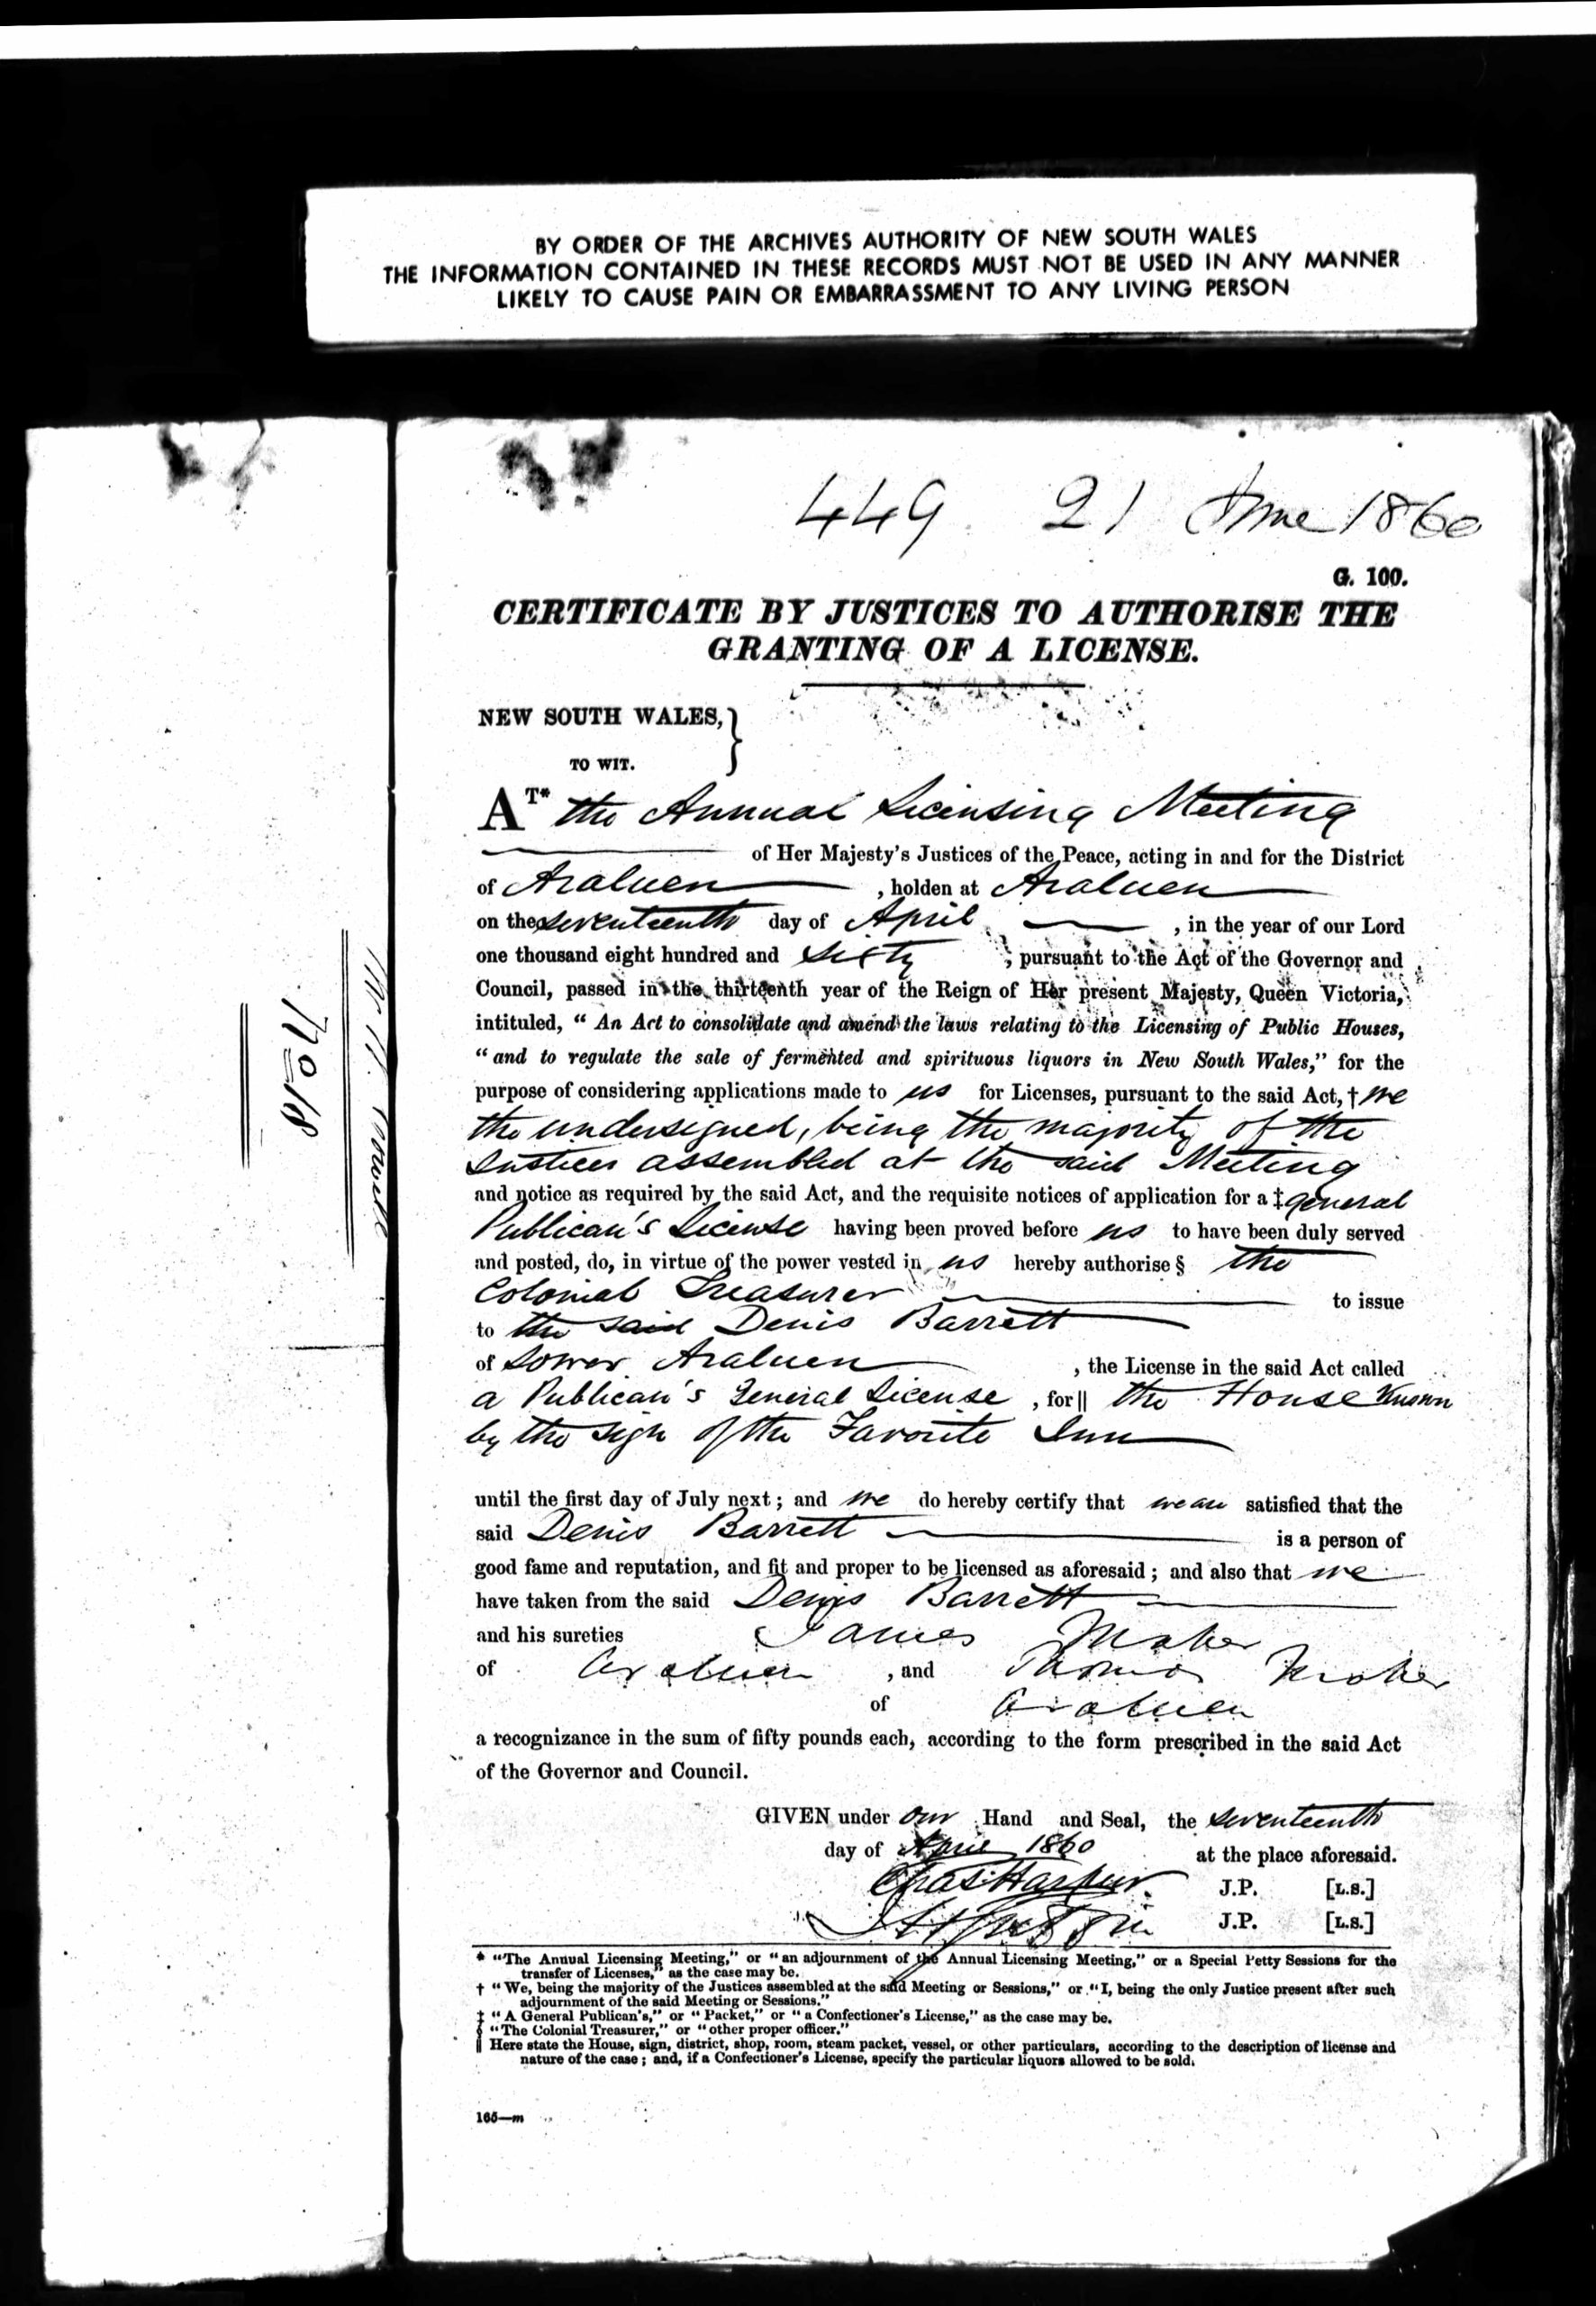 BY ORDER OF THE ARCHIVES AUTHORITY OF NEW SOUTH WALES
THE INFORMATION CONTAINED IN THESE RECORDS MUST NOT BE USED IN ANY MANNER
LIKELY TO CAUSE PAIN OR EMBARRASSMENT TO ANY LIVING PERSON
449 21 June 1860
G. 100.
CERTIFICATE BY JUSTICES TO AUTHORISE THE
GRANTING OF A LICENSE.
NEW SOUTH WALES, }
TO WIT.
AT* the Annual Licensing Meeting
of Her Majesty's Justices of the Peace, acting in and for the District
of Araluen, holden at Araluen
on the seventeenth day of April, in the year of our Lord
one thousand eight hundred and Sixty, pursuant to the Act of the Governor and
Council, passed in the thirteenth year of the Reign of Her present Majesty, Queen Victoria,
intituled, "An Act to consolidate and amend the laws relating to the Licensing of Public Houses,
"and to regulate the sale of fermented and spirituous liquors in New South Wales," for the
purpose of considering applications made to us for Licenses, pursuant to the said Act, † we
the undersigned, being the majority of the
Justices assembled at the said Meeting
and notice as required by the said Act, and the requisite notices of application for a ‡ general
Publican's License having been proved before us to have been duly served
and posted, do, in virtue of the power vested in us hereby authorise § the
Colonial Treasurer to issue
to the said Denis Barrett
of Lower Araluen, the License in the said Act called
a Publican's General License, for || the House Known
by the sign of the Favorite Inn
until the first day of July next; and we do hereby certify that we are satisfied that the
said Denis Barrett is a person of
good fame and reputation, and fit and proper to be licensed as aforesaid; and also that we
have taken from the said Denis Barrett
and his sureties James Maher
of Araluen, and Thomas Maher
of Araluen
a recognizance in the sum of fifty pounds each, according to the form prescribed in the said Act
of the Governor and Council.
GIVEN under our Hand and Seal, the seventeenth
day of April 1860 at the place aforesaid.
Chas Harpur J.P. [L.S.]
J.P. [L.S.]
* "The Annual Licensing Meeting," or "an adjournment of the Annual Licensing Meeting," or a Special Petty Sessions for the
transfer of Licenses," as the case may be.
† "We, being the majority of the Justices assembled at the said Meeting or Sessions," or "I, being the only Justice present after such
adjournment of the said Meeting or Sessions."
‡ "A General Publican's," or "Packet," or "a Confectioner's License," as the case may be.
§ "The Colonial Treasurer," or "other proper officer."
|| Here state the House, sign, district, shop, room, steam packet, vessel, or other particulars, according to the description of license and
nature of the case; and, if a Confectioner's License, specify the particular liquors allowed to be sold.
165—m